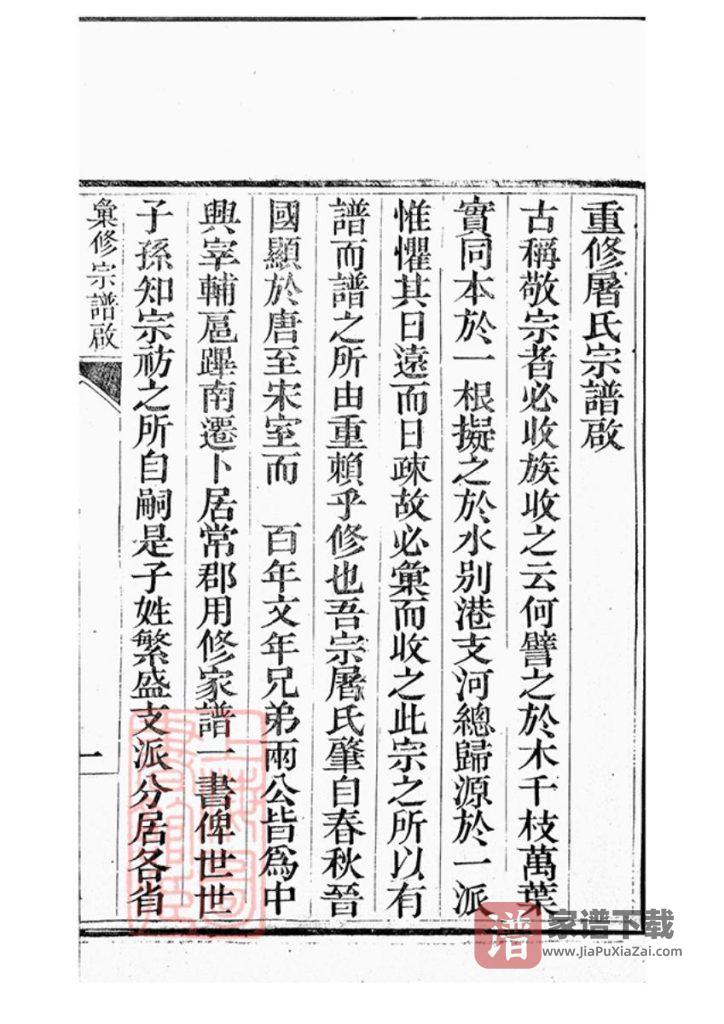 重修屠氏宗譜啟
古稱敬宗者必收族收之云何譬之於木千枝萬葉
實同本於一根擬之於水別港支河總歸源於一派
惟懼其日遠而日疎故必彙而收之此宗之所以有
譜而譜之所由重賴乎修也吾宗屠氏肇自春秋晉
國顯於唐至宋室而 百年文年兄弟兩公皆為中
興宰輔扈蹕南遷卜居常郡用修家譜一書俾世世
子孫知宗祊之所自嗣是子姓繁盛支派分居各省
彙修宗譜啟
一
譜 家谱下载
www.JiaPuXiaZai.com